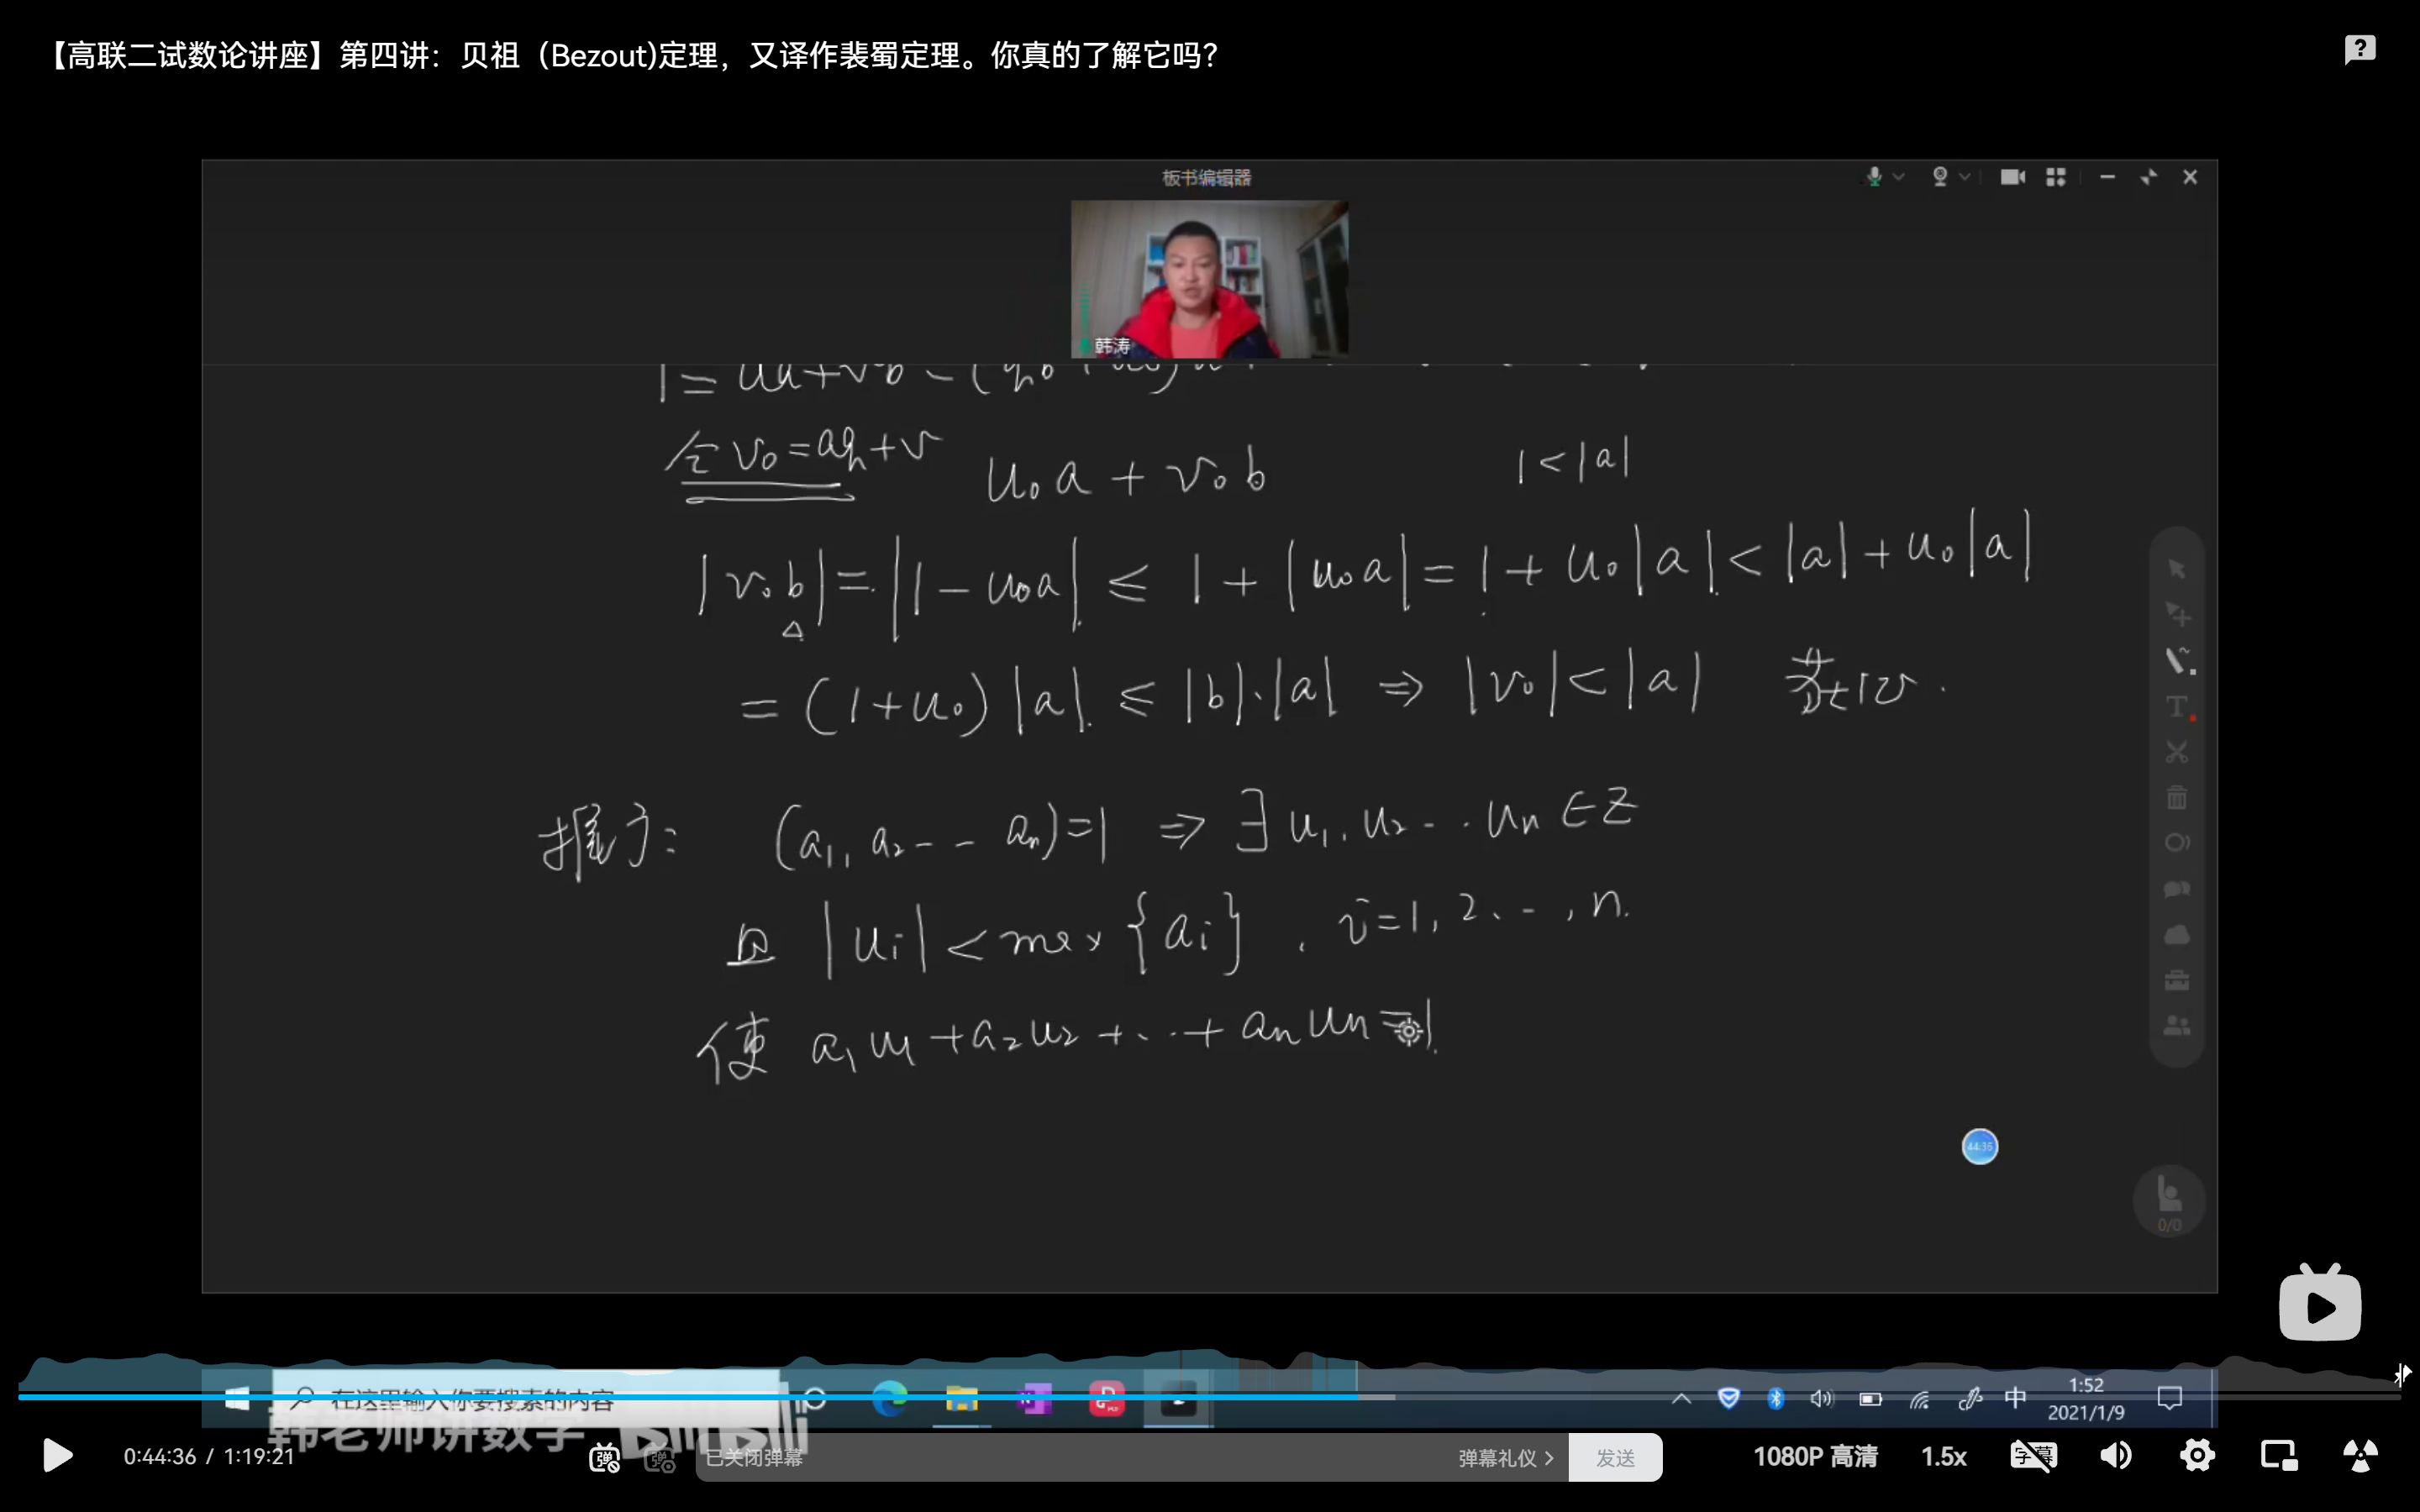 【高联二试数论讲座】第四讲：贝祖（Bezout)定理，又译作裴蜀定理。你真的了解它吗？
板书编辑器
韩涛
令 v₀=aq+v
u₀a + v₀b
1<|a|
|v₀b|=|1-u₀a| ≤ 1+|u₀a|=1+u₀|a|<|a|+u₀|a|
=(1+u₀)|a| ≤ |b|·|a| ⇒ |v₀|<|a|
推广: (a₁, a₂-- aₙ)=1 ⇒ ∃ u₁, u₂... uₙ ∈Z
且 |uᵢ|<max{aᵢ}, i=1,2,..,n.
使 a₁u₁+a₂u₂+...+aₙuₙ=1
44:35
0/0
在这里输入你要搜索的内容
中
1:52
2021/1/9
韩老师讲数学
bilibili
0:44:36 / 1:19:21
弹
已关闭弹幕
弹幕礼仪 >
发送
1080P 高清
1.5x
字幕